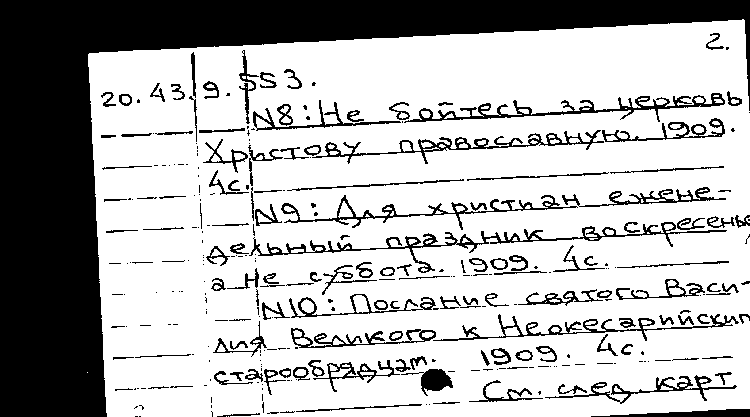 2.
20.43.9.553.
N8: Не бойтесь за церковь
Христову православную. 1909.
4с.
N9: Для христиан ежене-
дельный праздник воскресенье
а не суббота. 1909. 4с.
N10: Послание святого Васи-
лия Великого к Неокесарийским
старообрядцам. 1909. 4с.
См. след. карт